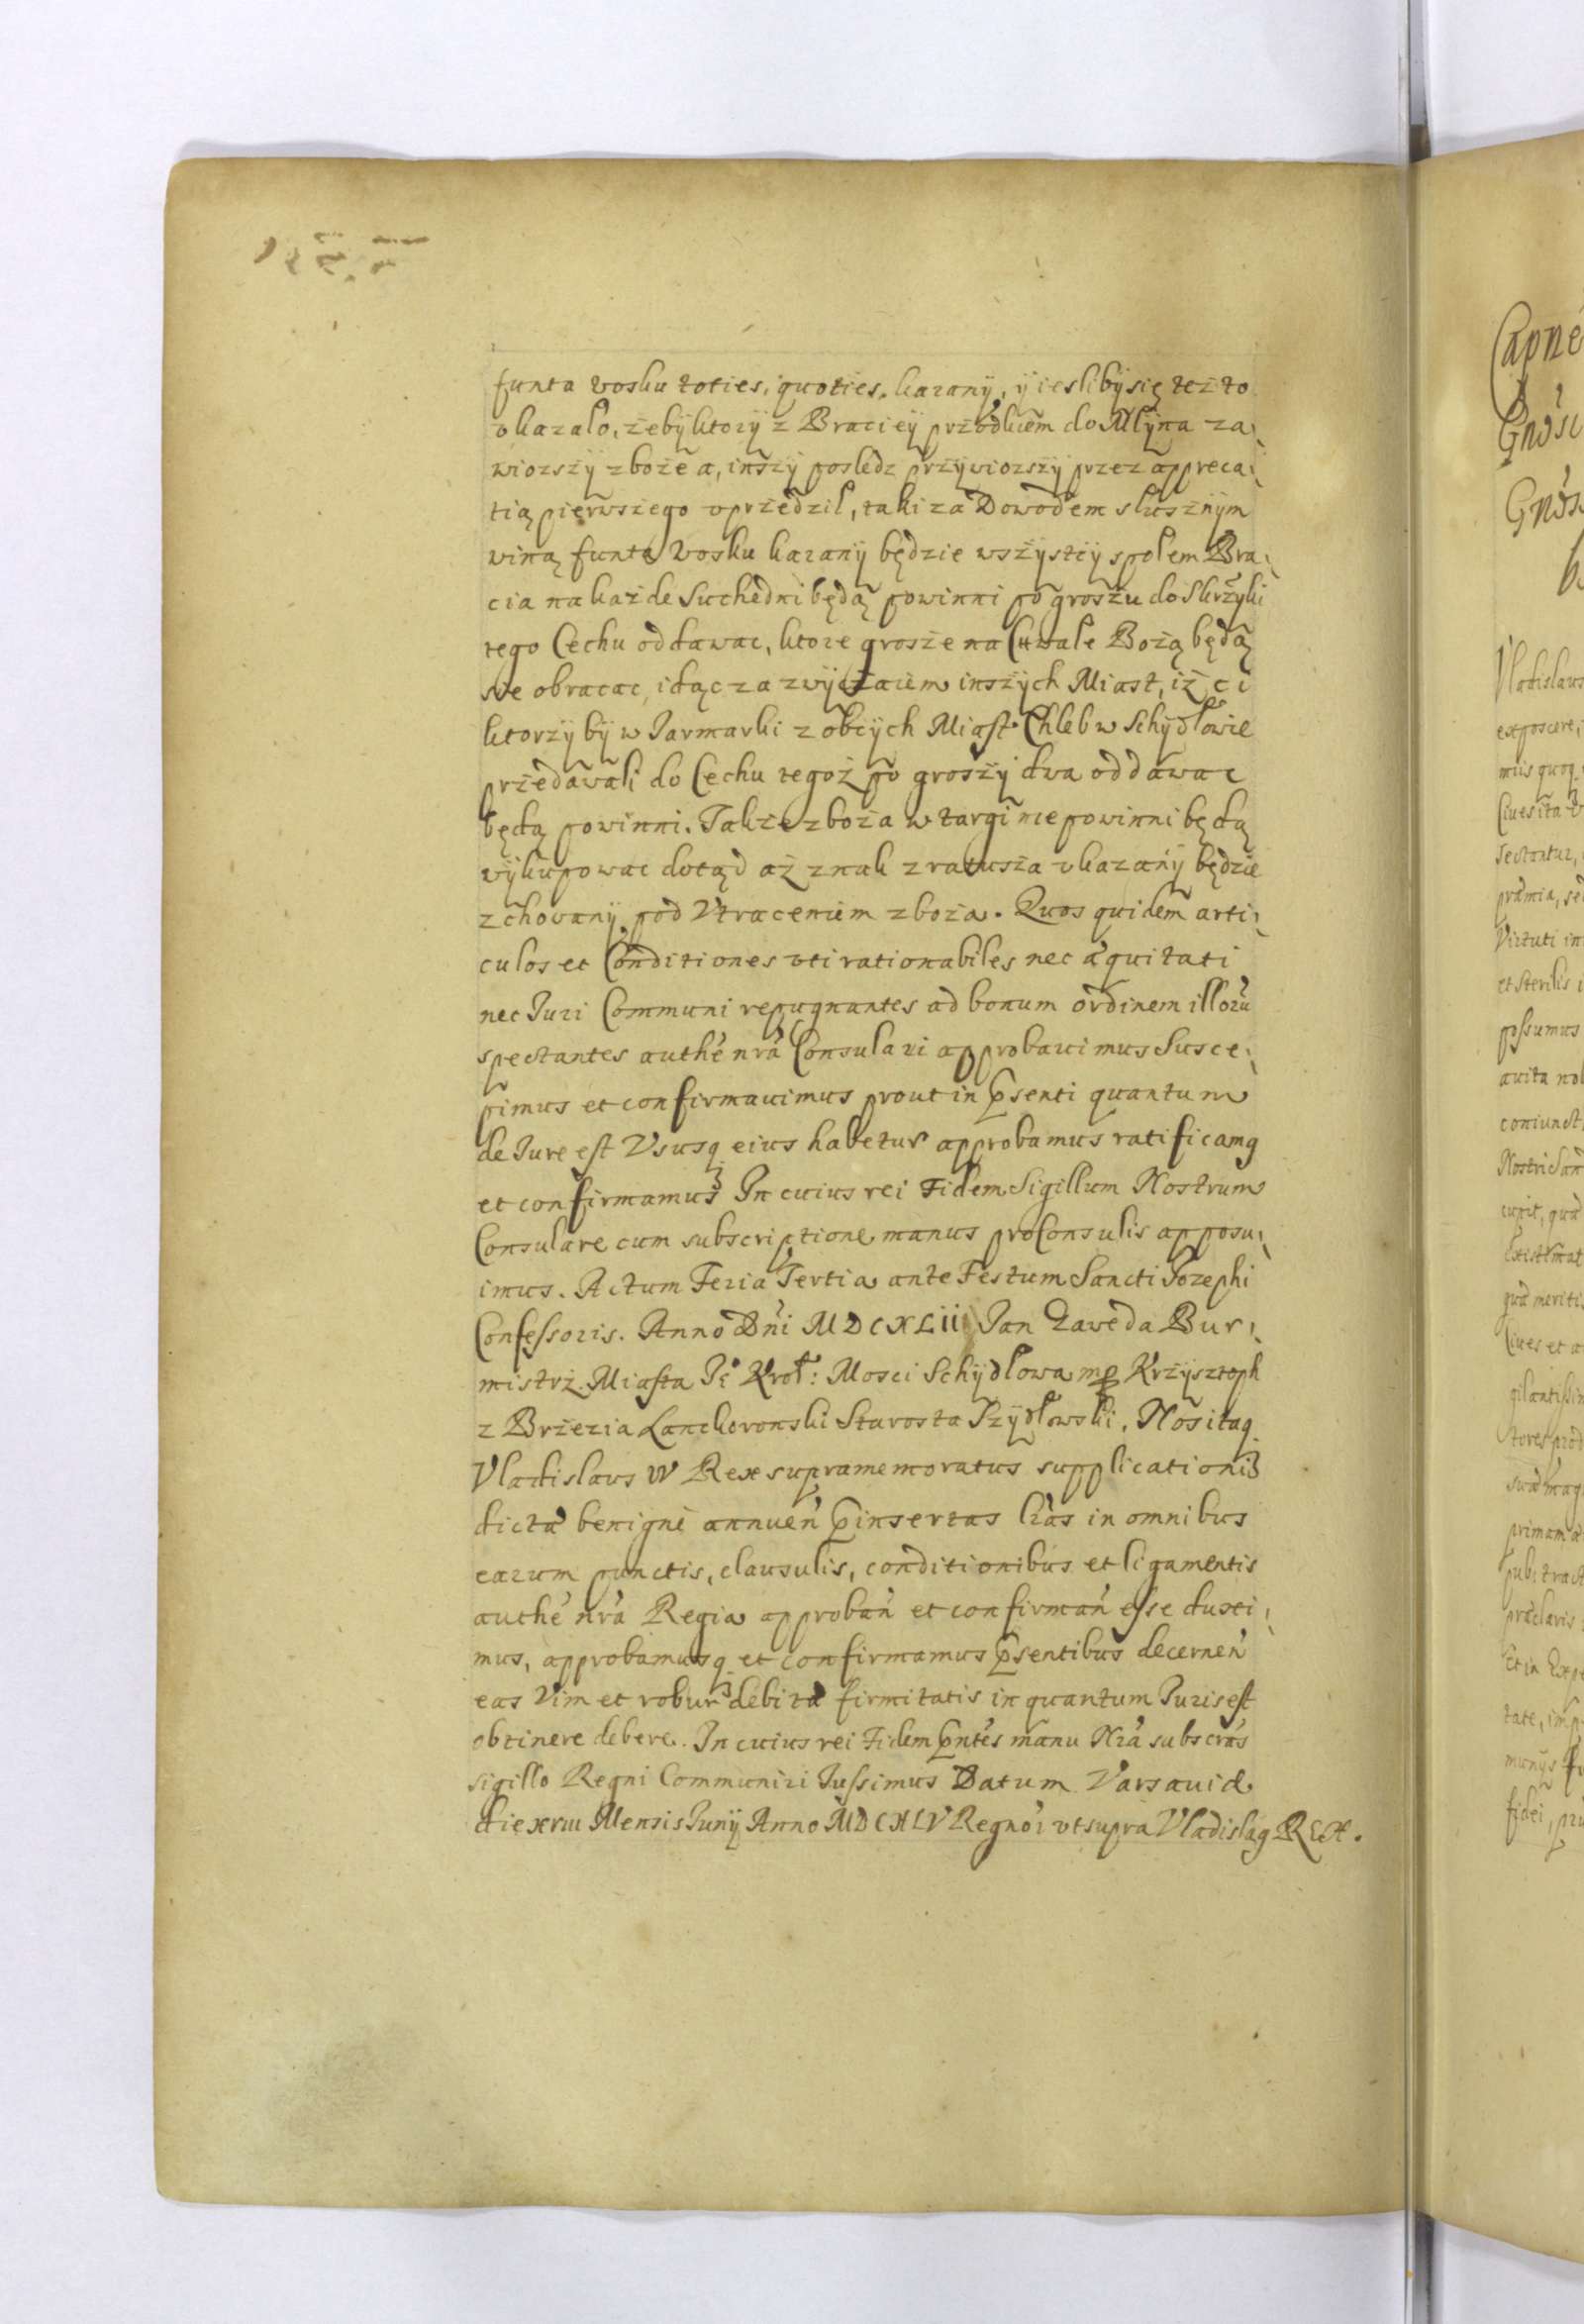 funta vosku toties, quoties. karany, ÿ ieslibysię też to
vkazało, zebÿ ktorÿ z Braciey przodkiem do Młÿna za-
wiozszÿ zboze a, inszÿ posledz przÿwiozszÿ przez appreca-
tią pierwszego vprzedzil, taki za Dowodem słusznÿm
viną funta Vosku karanÿ będzie wszÿstcÿ społem Bra-
cia na każde Suchedni będą powinni po groszu do Skrzÿki
tego Cechu oddawac, ktore grosze na Chwałe Bożą będą
sie obracac idąc za zwÿczaiem inszÿch Miast, iż ci
ktorzÿ bÿ w Jarmarki z obcÿch Miast Chleb w Schÿdłowie
przedawali do Cechu tegoż po groszÿ dwa oddawac
będą powinni. Takze zboża w targi nie powinni będą
vÿkupowac dotąd aż znak z ratusza vkazanÿ będzie
zchovanÿ pod Vtraceniem zboża. Quos quidem arti-
culos et Conditiones vti rationabiles nec æquitati
nec Juri Communi repugnantes ad bonum ordinem illorū
spectantes authē nrā Consulari approbavimus Susce-
pimus et confirmauimus prout in p̄senti quantum
de Jure est Vsusq eius habetur approbamus ratificamq
et confirmamus In cuius rei Fidem Sigillum Nostrum
Consulare cum subscriptione manus proConsulis apposu-
imus. Actum Feria Tertia ante Festum Sancti Jozephi
Confessoris. Anno Dn̄i MDCXLii Jan Zaweda Bur-
mistrz. Miasta Je Krol: Mosci Schÿdłowa mp Krzÿsztoph
z Brzezia Lanckoronski Starosta Szÿdłowski. Nos itaq
Vladislaus IV Rex supramemoratus supplicationi
dictæ benignè annuen̄ p̄insertas lrās in omnibus
earum punctis, clausulis, conditionibus et ligamentis
authē nrā Regia approban̄ et confirman̄ esse duxi-
mus, approbamusq et confirmamus p̄sentibus decernen̄
eas Vim et robur debitæ firmitatis in quantum Juris est
obtinere debere. In cuius rei Fidem p̄ntēs manu Nrā subscrās
sigillo Regni Communiri Jussimus Datum Varsauiæ
die xviii Mensis Junÿ Anno MDCXLV Regnōr vt supra Vladislaq REX.